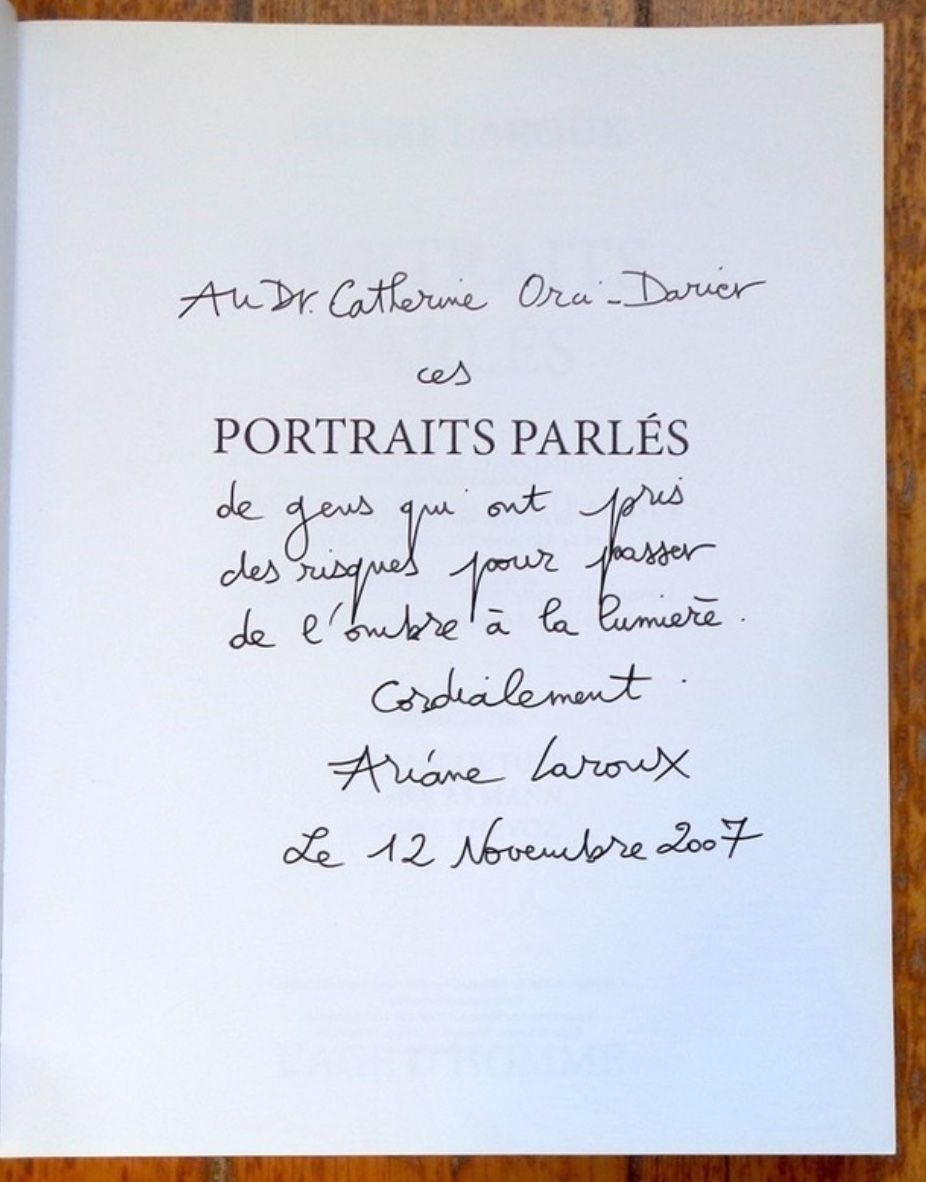 Au Dr. Catherine Orci-Darier
ces
PORTRAITS PARLÉS
de gens qui ont pris
des risques pour passer
de l'ombre à la lumière.
Cordialement.
Ariane Laroux
Le 12 Novembre 2007